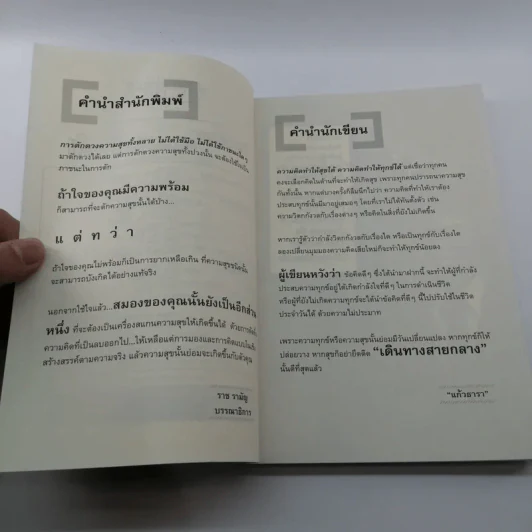 คำนำสำนักพิมพ์
การตักตวงความสุขทั้งหลาย ไม่ได้ใช้มือ ไม่ได้ใช้ภาชนะใดๆ
มาตักตวงได้เลย แต่การตักตวงความสุขทั้งปวงนั้น จะต้องใช้ใจเป็น
ภาชนะในการตัก
ถ้าใจของคุณมีความพร้อม
ก็สามารถที่จะตักความสุขนั้นได้บ้าง...
แ ต่ ท ว่ า
ถ้าใจของคุณไม่พร้อมก็เป็นการยากเหลือเกิน ที่ความสุขชนิดนั้น
จะสามารถบังเกิดได้อย่างแท้จริง
นอกจากใช้ใจแล้ว...สมองของคุณนั้นยังเป็นอีกส่วน
หนึ่ง ที่จะต้องเป็นเครื่องสแกนความสุขให้เกิดขึ้นได้ ด้วยการตัด
ความคิดที่เป็นลบออกไป...ให้เหลือแต่การมองและการคิดแบบ
สร้างสรรค์ตามความจริง แล้วความสุขนั้นย่อมจะเกิดขึ้นกับตัวคุณ
ราช รามัญ
บรรณาธิการ
คำนำนักเขียน
ความคิดทำให้สุขได้ ความคิดทำให้ทุกข์ได้ แต่เชื่อว่าทุกคน
คงจะเลือกคิดในด้านที่จะทำให้เกิดสุข เพราะทุกคนปรารถนาความสุข
กันทั้งนั้น หากแต่บางครั้งก็ลืมนึกไปว่า ความคิดที่ทำให้เราต้อง
ประสบทุกข์นั้นมีมาอยู่เสมอๆ โดยที่เราไม่ได้ทันตั้งตัว เช่น
ความวิตกกังวลกับเรื่องต่างๆ หรือคิดในสิ่งที่ยังไม่เกิดขึ้น
หากเรารู้ตัวว่ากำลังวิตกกังวลกับเรื่องใด หรือเป็นทุกข์กับเรื่องใด
ลองเปลี่ยนมุมมองความคิดเสียใหม่ก็จะทำให้ทุกข์น้อยลง
ผู้เขียนหวังว่า ข้อคิดดีๆ ซึ่งได้นำมาฝากนี้ จะทำให้ผู้ที่กำลัง
ประสบความทุกข์อยู่ได้เกิดกำลังใจที่ดีๆ ในการดำเนินชีวิต
หรือผู้ที่ยังไม่เกิดความทุกข์จะได้นำข้อคิดที่ดีๆ นี้ไปปรับใช้ในชีวิต
ประจำวันได้ ด้วยความไม่ประมาท
เพราะความทุกข์หรือความสุขนั้นย่อมมีวันเปลี่ยนแปลง หากทุกข์ก็ให้
ปล่อยวาง หากสุขก็อย่ายึดติด "เดินทางสายกลาง"
นั้นดีที่สุดแล้ว
"แก้วธารา"